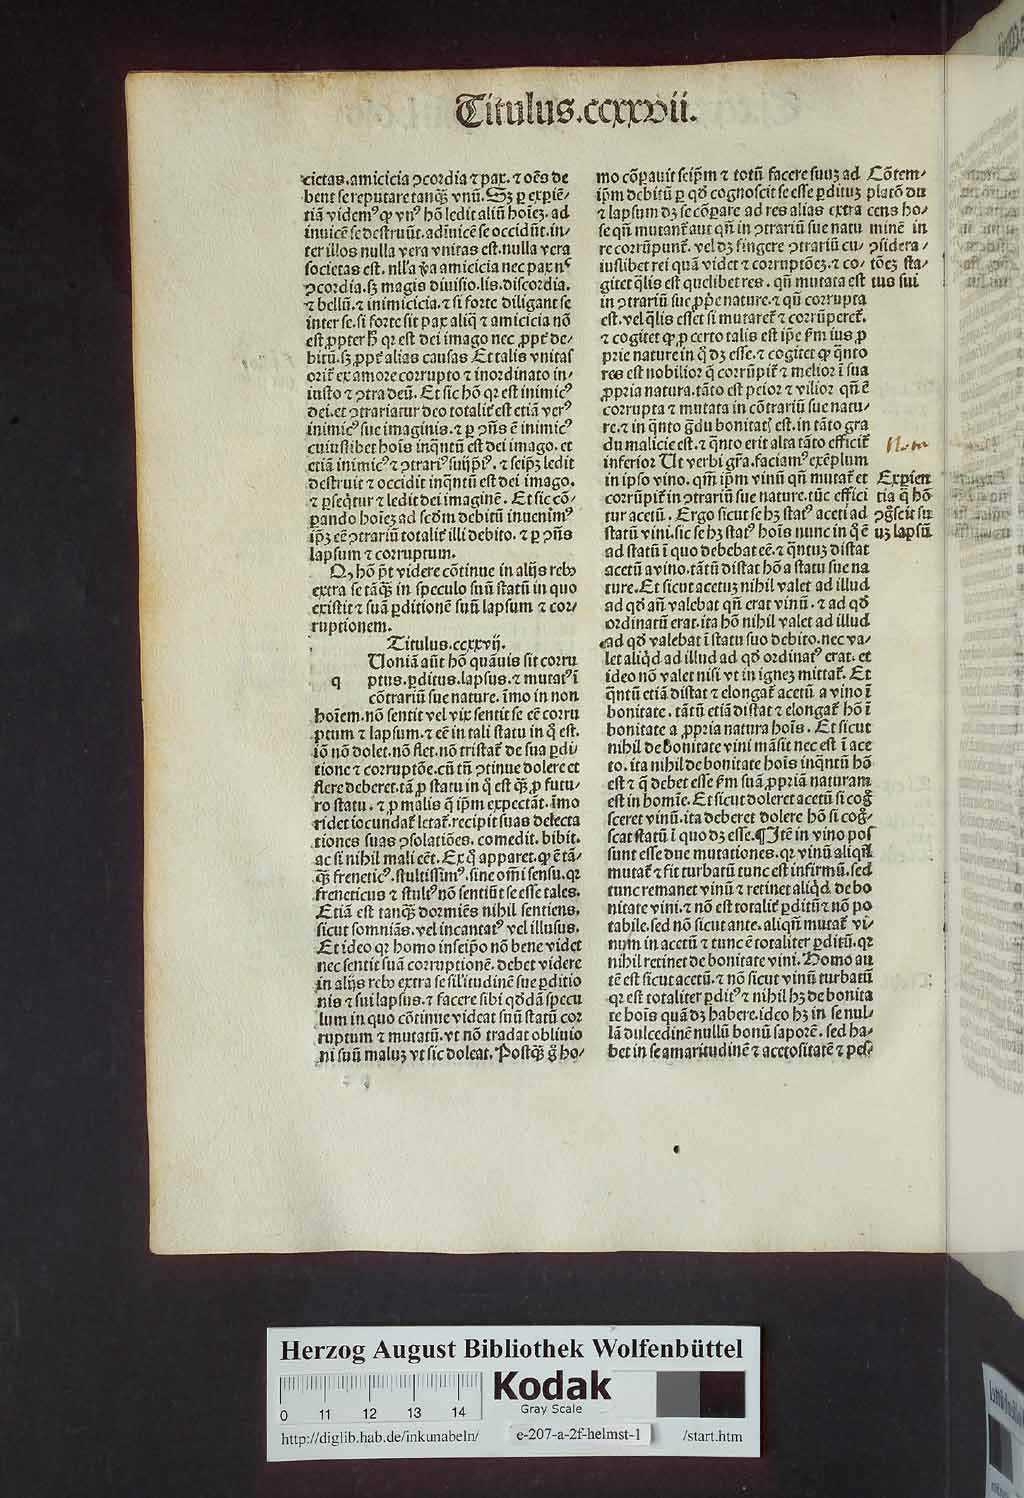 Titulus.ccxxvii.
cietas.amicicia ꝯcordia ⁊ pax. ⁊ oēs de
bent se reputare tanqȝ vnū. Sȝ ꝑ exꝑiē-
tiā videmꝰ ꝙ vnꝰ hō ledit aliū hoīeȝ. ad
inuicē se destruūt. adinuicē se occidūt. in-
ter illos nulla vera vnitas est. nulla vera
societas est. nlla ꝟa amicicia nec pax nꝰ
ꝯcordia. sȝ magis diuisio. lis. discordia.
⁊ bellū. ⁊ inimicicia. ⁊ si forte diligant se
inter se. si forte sit pax aliq̄ ⁊ amicicia nō
est ꝓpter hͦ qr est dei imago nec ꝓpt̄ de-
bitū. sȝ ꝓpt̄ alias causas Et talis vnitas
orit̄ ex amore corrupto ⁊ inordinato in-
iusto ⁊ ꝯtra deū. Et sic hō qr est inimicꝰ
dei. et ꝯtrariatur deo totalit̄ est etiā verꝰ
inimicꝰ sue imaginis. ⁊ ꝑ ꝯn̄s ē inimicꝰ
cuiuslibet hoīs inqntū est dei imago. et
etiā inimicꝰ ⁊ ꝯtrariꝰ suijpīꝰ. ⁊ seipȝ ledit
destruit ⁊ occidit inqntū est dei imago.
⁊ ꝑseqt̄ur ⁊ ledit dei imaginē. Et sic cō-
ꝑando hoīeȝ ad scdm debitū inuenimꝰ
ipȝ eē ꝯtrariū totalit̄ illi debito. ⁊ ꝑ ꝯn̄s
lapsum ⁊ corruptum.
Qꝫ hō pt̄ videre cōtinue in alijs rebꝰ
extra se tāqȝ in speculo suū statū in quo
existit ⁊ suā ꝑditionē suū lapsum ⁊ cor-
ruptionem.
Titulus.ccxxvij.
q
Uoniā aūt hō quāuis sit corru
ptus. ꝑditus. lapsus. ⁊ mutatꝰ ī
cōtrariū sue nature. īmo in non
hoīem. nō sentit vel vix sentit se eē corru
ptum ⁊ lapsum. ⁊ eē in tali statu in q̄ est.
iō nō dolet. nō flet. nō tristat̄ de sua ꝑdi
tione ⁊ corruptōe. cū tn̄ ꝯtinue dolere et
flere deberet. tā ꝓ statu in q̄ est qȝ ꝓ futu-
ro statu. ⁊ ꝓ malis q̄ ipm̄ expectāt. īmo
ridet iocundat̄ letat̄. recipit suas delecta
tiones suas ꝯsolatiōes. comedit. bibit.
ac si nihil mali eēt. Ex q̄ apparet. ꝙ ē tā-
qȝ freneticꝰ. stultissimꝰ. sine om̄i sensu. qr
freneticus ⁊ stultꝰ nō sentiūt se esse tales.
Etiā est tanqȝ dormiēs nihil sentiens.
sicut somniās. vel incantatꝰ vel illusus.
Et ideo qr homo inseipo nō bene videt
nec sentit suā corruptionē. debet videre
in alijs rebꝰ extra se silitudinē sue ꝑditio
nis ⁊ sui lapsus. ⁊ facere sibi qdā specu
lum in quo cōtinue videat suū statū cor
ruptum ⁊ mutatū. vt nō tradat obliuio
ni suū maluȝ vt sic doleat. Postqȝ g̊ ho-
mo cōꝑauit seipm̄ ⁊ totū facere suuȝ ad
ipm̄ debitū ꝑ qd̄ cognoscit se esse ꝑdituȝ
⁊ lapsum dȝ se cōꝑare ad res alias extra
se qn̄ mutant̄ aut qn̄ in ꝯtrariū sue natu
re corrūpunt̄. vel dȝ fingere ꝯtrariū cu-
iuslibet rei quā videt ⁊ corruptōeȝ. ⁊ co-
gitet qlis est quelibet res. qn̄ mutata est
in ꝯtrariū sue ꝓpe nature. ⁊ qn̄ corrupta
est. vel qlis esset si mutaret̄ ⁊ corrūperet̄.
⁊ cogitet ꝙ ꝓ certo talis est ipe fm ius ꝓ
prie nature in q̄ dȝ esse. ⁊ cogitet ꝙ qnto
res est nobilior q̄ corrūpit̄ ⁊ melior ī sua
ꝓpria natura. tāto est peior ⁊ vilior qn̄ ē
corrupta ⁊ mutata in cōtrariū sue natu-
re. ⁊ in qnto g̊du bonitatꝭ est. in tāto gra
du malicie est. ⁊ qnto erit alta tāto efficit̄
inferior Ut verbi gr̄a. faciamꝰ exēplum
in ipso vino. qm̄ ipm̄ vinū qn̄ mutat̄ et
corrūpit̄ in ꝯtrariū sue nature. tūc effici
tur acetū. Ergo sicut se hȝ statꝰ aceti ad
statū vini. sic se hȝ statꝰ hoīs nunc in q̄ ē
ad statū ī quo debebat eē. ⁊ qntuȝ distat
acetū a vino. tātū distat hō a statu sue na
ture. Et sicut acetuȝ nihil valet ad illud
ad qd̄ an̄ valebat qn̄ erat vinū. ⁊ ad qd̄
ordinatū erat. ita hō nihil valet ad illud
ad qd̄ valebat ī statu suo debito. nec va-
let aliqd ad illud ad qd̄ ordinatꝰ erat. et
ideo nō valet nisi vt in igneȝ mittat̄. Et
qntū etiā distat ⁊ elongat̄ acetū a vino ī
bonitate. tātū etiā distat ⁊ elongat̄ hō ī
bonitate a ꝓpria natura hoīs. Et sicut
nihil de bonitate vini māsit nec est ī ace
to. ita nihil de bonitate hoīs inqntū hō
est ⁊ q̄ debet esse fm suā ꝓpriā naturam
est in homīe. Et sicut doleret acetū si cog̊
sceret vinū. ita deberet dolere hō si cog̊-
scat statū ī quo dȝ esse. ¶Itē in vino pos
sunt esse due mutationes. qr vinū aliqn̄
mutat̄ ⁊ fit turbatū tunc est infirmū. sed
tunc remanet vinū ⁊ retinet aliqd de bo
nitate vini. ⁊ nō est totalit̄ ꝑditū ⁊ nō po
tabile. sed nō sicut ante. aliqn̄ mutat̄ vi-
num in acetū ⁊ tunc ē totaliter ꝑditū. qr
nihil retinet de bonitate vini. Homo au
tē est sicut acetū. ⁊ nō sicut vinū turbatū
qr est totaliter ꝑditꝰ ⁊ nihil hȝ de bonita
te hoīs quā dȝ habere. ideo hȝ in se nul-
lā dulcedinē nullū bonū saporē. sed ha-
bet in se amaritudinē ⁊ acetositatē ⁊ pes-
Cōtem-
platō du
cens ho-
minē in
ꝯsidera-
tōeȝ sta-
tus sui
Nota
Exꝑien
tia q̄ hō
ꝯg̊scit su
uȝ lapsū
Herzog August Bibliothek Wolfenbüttel
Kodak
Gray Scale
0 11 12 13 14
http://diglib.hab.de/inkunabeln/ e-207-a-2f-helmst-1 /start.htm